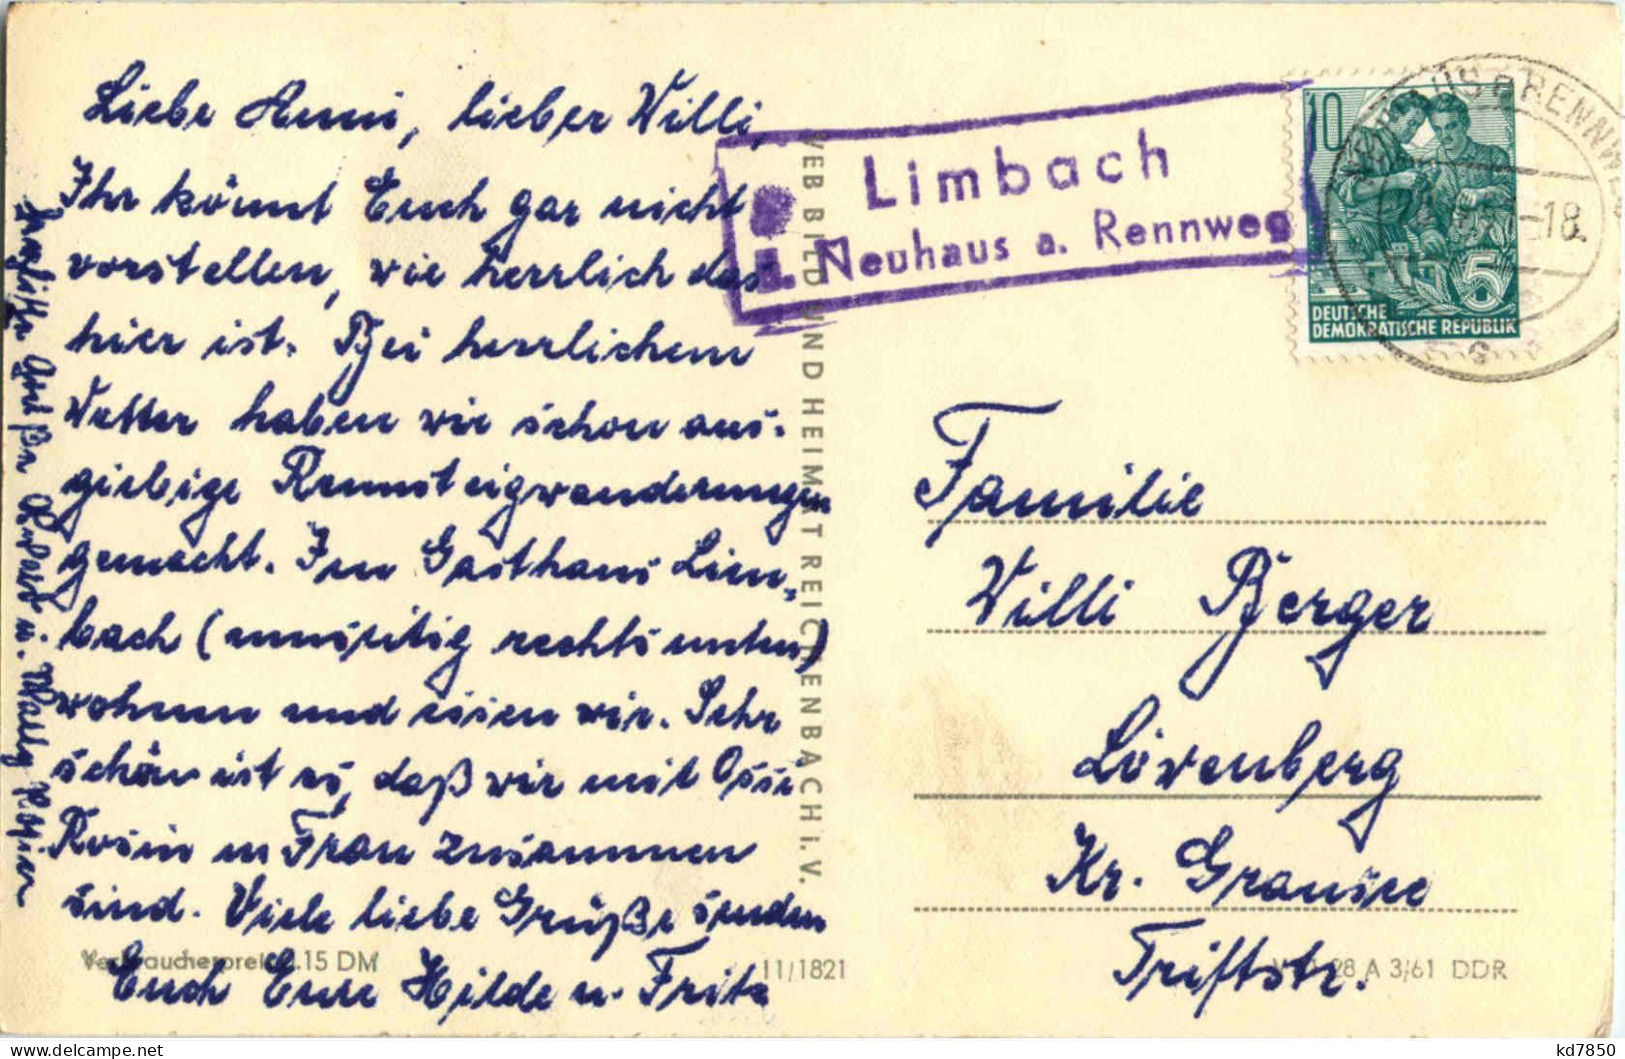 Liebe Anni, lieber Willi,
Ihr könnt Euch gar nicht
vorstellen, wie herrlich das
hier ist. Bei herrlichem
Wetter haben wir schon aus-
giebige Rennsteigwanderungen
gemacht. Im Gasthaus Lim-
bach (umseitig rechts unten)
wohnen und essen wir. Sehr
schön ist es, daß wir mit Ossi
Rosin u Frau zusammen
sind. Viele liebe Grüße senden
Euch Eure Hilde u. Fritz
Herzliche Grüße u. Wally Rosin
Verbraucherpreis 0.15 DM
11/1821
VEB BILD UND HEIMAT REICHENBACH i. V.
Limbach
ü. Neuhaus a. Rennweg
10
5
DEUTSCHE
DEMOKRATISCHE REPUBLIK
NEUHAUS a RENNWEG
-18
Familie
Willi Berger
Löwenberg
Kr. Gransee
Triftstr.
28 A 3/61 DDR
kd7850